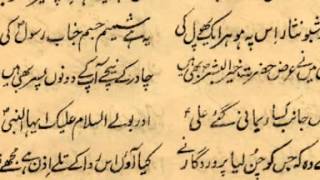 شبو نثار اس پہ ہو ہر ایک پھول کی یہ ہے شمیم جسم جناب رسول کی
میں عرض حضرت خیر البشر بھی ہیں چادر کے نیچے آپ کے دونوں پسر بھی ہیں
جانب کسا ربانی گئے علی اور بولے السلام علیک ایہا النبی
وہ کہ جس کو چن لیا پروردگار نے کیا آؤں اس ردا کے تلے اذن ہے مجھے